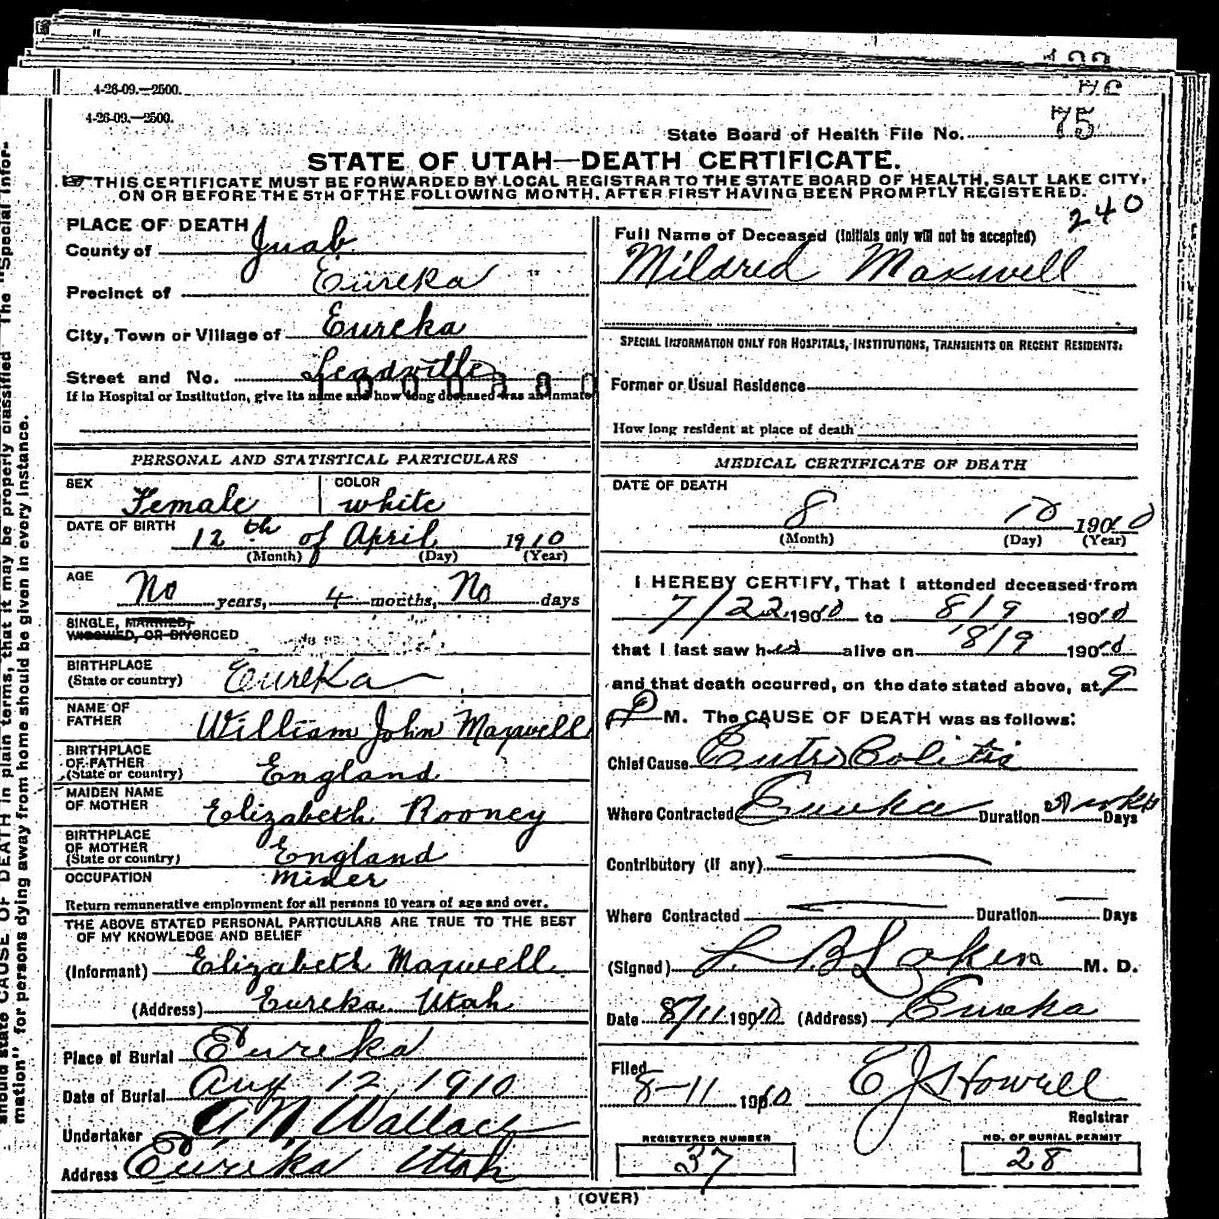 4-26-09.—2500.
4-26-09.—2500.
State Board of Health File No. 75
STATE OF UTAH—DEATH CERTIFICATE.
THIS CERTIFICATE MUST BE FORWARDED BY LOCAL REGISTRAR TO THE STATE BOARD OF HEALTH, SALT LAKE CITY,
ON OR BEFORE THE 5TH OF THE FOLLOWING MONTH, AFTER FIRST HAVING BEEN PROMPTLY REGISTERED.
240
PLACE OF DEATH
County of Juab
Precinct of Eureka
City, Town or Village of Eureka
Street and No. Leadville
If in Hospital or Institution, give its name and how long deceased was an inmate
Full Name of Deceased (Initials only will not be accepted)
Mildred Maxwell
SPECIAL INFORMATION ONLY FOR HOSPITALS, INSTITUTIONS, TRANSIENTS OR RECENT RESIDENTS:
Former or Usual Residence
How long resident at place of death
PERSONAL AND STATISTICAL PARTICULARS
SEX Female COLOR white
DATE OF BIRTH 12th of April 1910
(Month) (Day) (Year)
AGE No years, 4 months, No days
SINGLE, MARRIED,
WIDOWED, OR DIVORCED
BIRTHPLACE
(State or country) Eureka
NAME OF
FATHER William John Maxwell
BIRTHPLACE
OF FATHER
(State or country) England
MAIDEN NAME
OF MOTHER Elizabeth Rooney
BIRTHPLACE
OF MOTHER
(State or country) England
OCCUPATION Miner
Return remunerative employment for all persons 10 years of age and over.
THE ABOVE STATED PERSONAL PARTICULARS ARE TRUE TO THE BEST
OF MY KNOWLEDGE AND BELIEF
(Informant) Elizabeth Maxwell
(Address) Eureka Utah
Place of Burial Eureka
Date of Burial Aug 12, 1910
Undertaker A N Wallace
Address Eureka Utah
MEDICAL CERTIFICATE OF DEATH
DATE OF DEATH
8 10 1910
(Month) (Day) (Year)
I HEREBY CERTIFY, That I attended deceased from
7/22 1910 to 8/9 1910
that I last saw her alive on 8/9 1910
and that death occurred, on the date stated above, at 9
P M. The CAUSE OF DEATH was as follows:
Chief Cause Entro Colitis
Where Contracted Eureka Duration Days
Contributory (if any)
Where Contracted Duration Days
(Signed) M. D.
Date 8/11 1910 (Address) Eureka
Filed
8-11 1910 E J Howell
Registrar
REGISTERED NUMBER
37
NO. OF BURIAL PERMIT
28
(OVER)
should state CAUSE OF DEATH in plain terms, that it may be properly classified The "Special Infor-
mation" for persons dying away from home should be given in every instance.